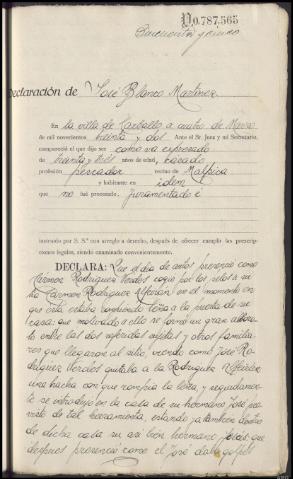 N0.787,565
Cincuenta y cinco
Declaración de José Blanco Martínez
En la villa de Carballo a cuatro de Marzo
de mil novecientos treinta y dos Ante el Sr. Juez y mi Secretario,
compareció el que dijo ser como va expresado
de treinta y tres años de edad, casado
profesión pescador vecino de Malpica
y habitante en idem
que no fué procesado, juramentado é
instruido por S. S.ª con arreglo a derecho, después de ofrecer cumplir las prescrip-
ciones legales, siendo examinado convenientemente.
DECLARA: Que el día de autos presenció como
Carmen Rodriguez Verdes cogió por los pelos a su
tía Carmen Rodriguez en el momento en
que esta estaba vendiendo loza a la puerta de su
casa: que motivado a ello se formó un gran alboro-
to entre las dos referidas sujetas y otros familia-
res que llegaron al sitio, viendo como José Ro-
driguez Verdes quitaba a la Rodriguez
una hacha con que rompía la loza, y seguidamen-
te se introdujo en la casa de su hermano José, pro-
visto de tal herramienta, estando ya también dentro
de dicha casa su así bien hermano que
después presenció como el José daba golpes